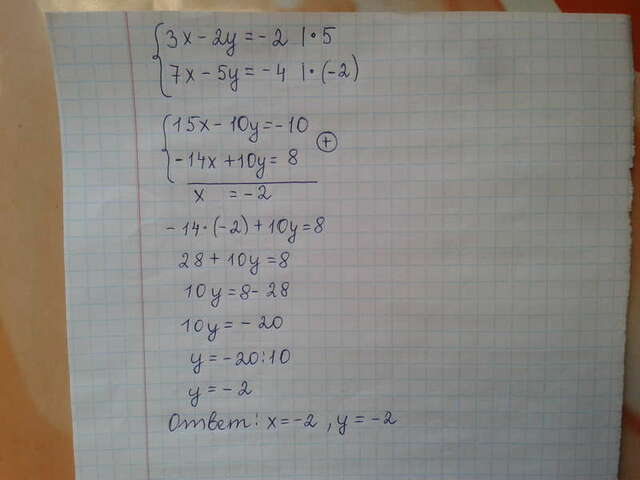 3x - 2y = -2 | • 5
7x - 5y = -4 | • (-2)
15x - 10y = -10
-14x + 10y = 8
+
x = -2
-14 • (-2) + 10y = 8
28 + 10y = 8
10y = 8 - 28
10y = -20
y = -20 : 10
y = -2
Ответ: x = -2 , y = -2